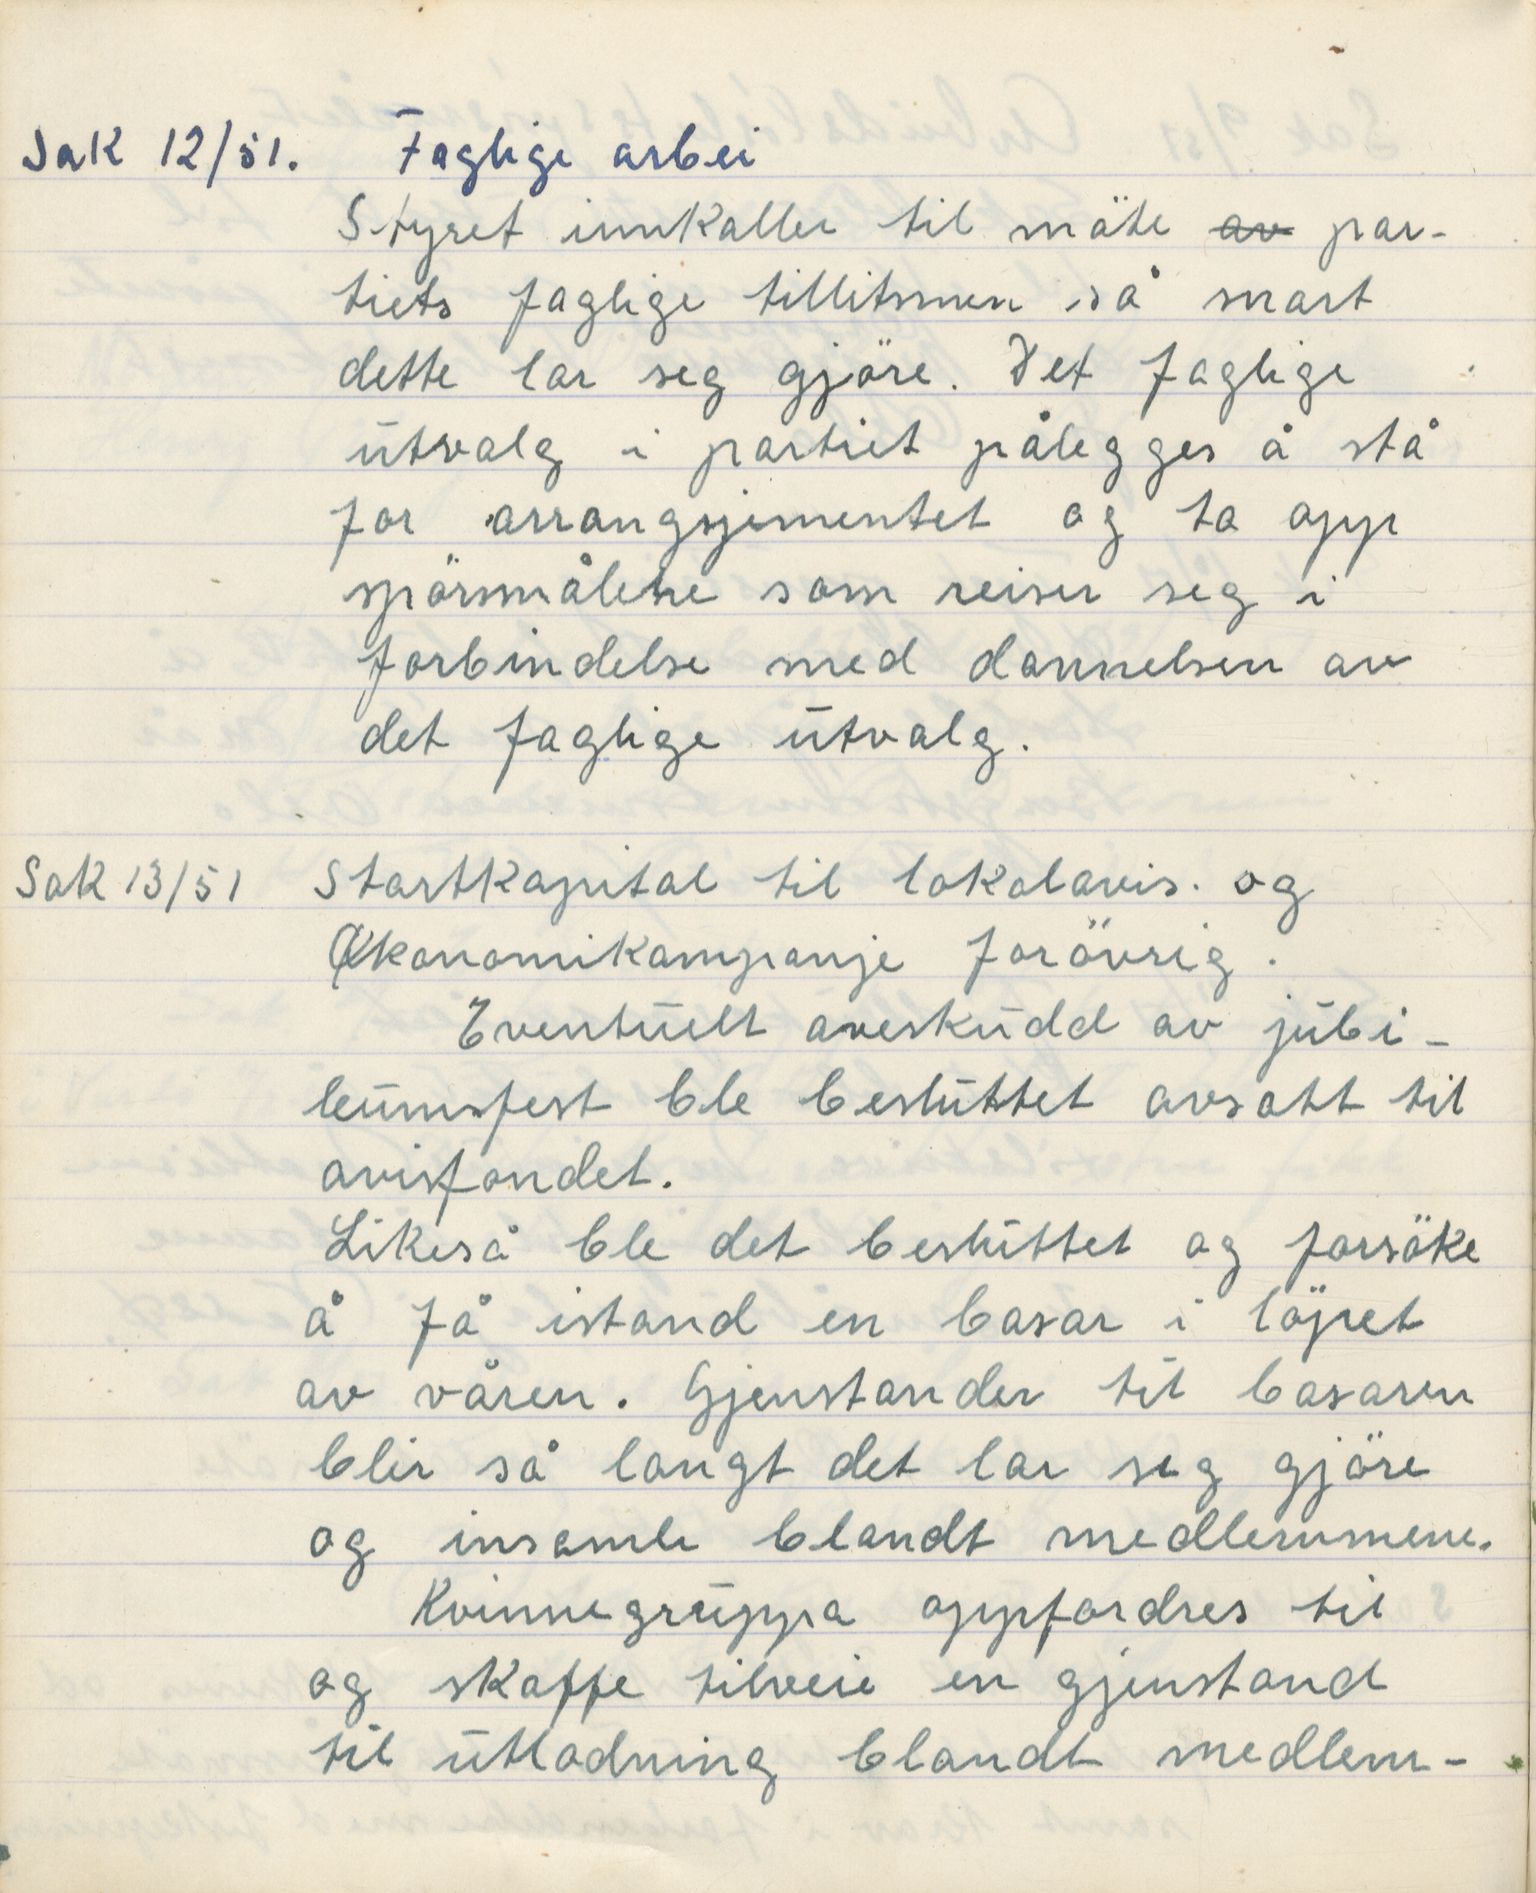 Sak 12/51. Faglige arbei
Styret innkaller til möte ~~av~~ par-
tiets faglige tillitsmen så snart
dette lar seg gjöre. Det faglige
utvalg i partiet pålegges å stå
for arrangsjementet og ta opp
spörsmålene som reiser seg i
forbindelse med dannelsen av
det faglige utvalg.
Sak 13/51 Startkapital til lokalavis. og
Økonomikampanje forövrig.
Eventuelt overskudd av jubi-
leumsfest ble besluttet avsatt til
avisfondet.
Likeså ble det besluttet og forsöke
å få istand en basar i löpet
av våren. Gjenstander til basaren
blir så langt det lar seg gjöre
og insamle blandt medlemmene.
Kvinnegruppa oppfordres til
og skaffe tilveie en gjenstand
til utlodning blandt medlem-